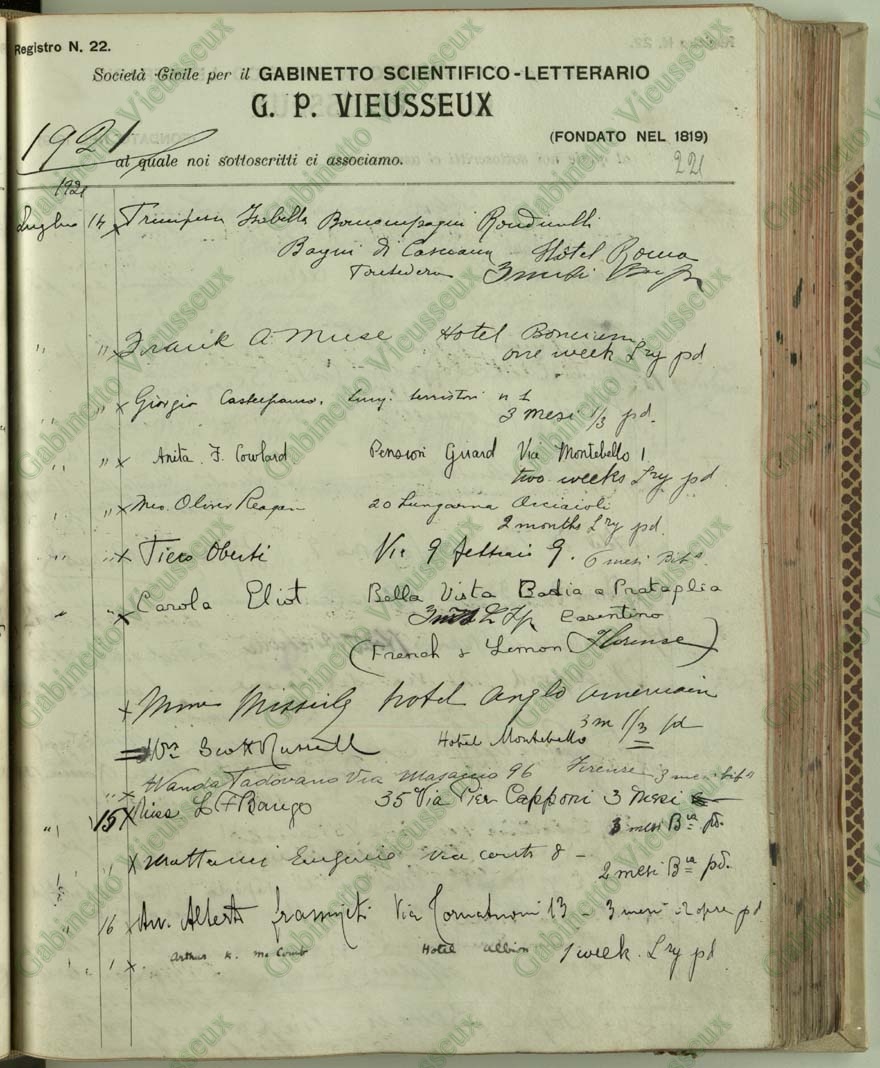 Registro N. 22.
Società Civile per il GABINETTO SCIENTIFICO-LETTERARIO
G. P. VIEUSSEUX
(FONDATO NEL 1819)
1921
al quale noi sottoscritti ci associamo.
221
1921
Luglio 14 x Isabella Boncompagni Rondinelli
Bagni di Casciana Hôtel Roma
Pontedera 3 mesi
" " x Frank A. Muse Hotel
one week Lry pd
" " x Giorgio Lung. Serristori n 1
3 mesi 1/3 pd.
" " x Anita F. Cowlard. Pension Via Montebello 1
two weeks Lry pd
" " x Mrs. Oliver Reagan 20 Lungarno Acciaioli
2 months Lry pd.
" " x Piero Oberti Via 9 febbraio 9. 6 mesi
" x Carola Eliot Bella Vista Badia a Prataglia
Casentino
(French & Lemon Florense)
x Mme hotel Anglo americain
3 m 1/3 pd
Scott Russell Hotel Montebello
" x Wanda Padovano Via Masaccio 96 Firenze 3 mesi
" 15 x Miss L F 35 Via Pier Capponi 3 Mesi
3 mesi Bia pd.
" x Eugenio via conti 8 -
2 mesi Bia pd.
" 16 x Av. Alberto Via Tornabuoni 13 - 3 mesi 2 opere pd
" " x Arthur K. Mc Comb Hotel Albion 1 week. Lry pd
Gabinetto Vieusseux